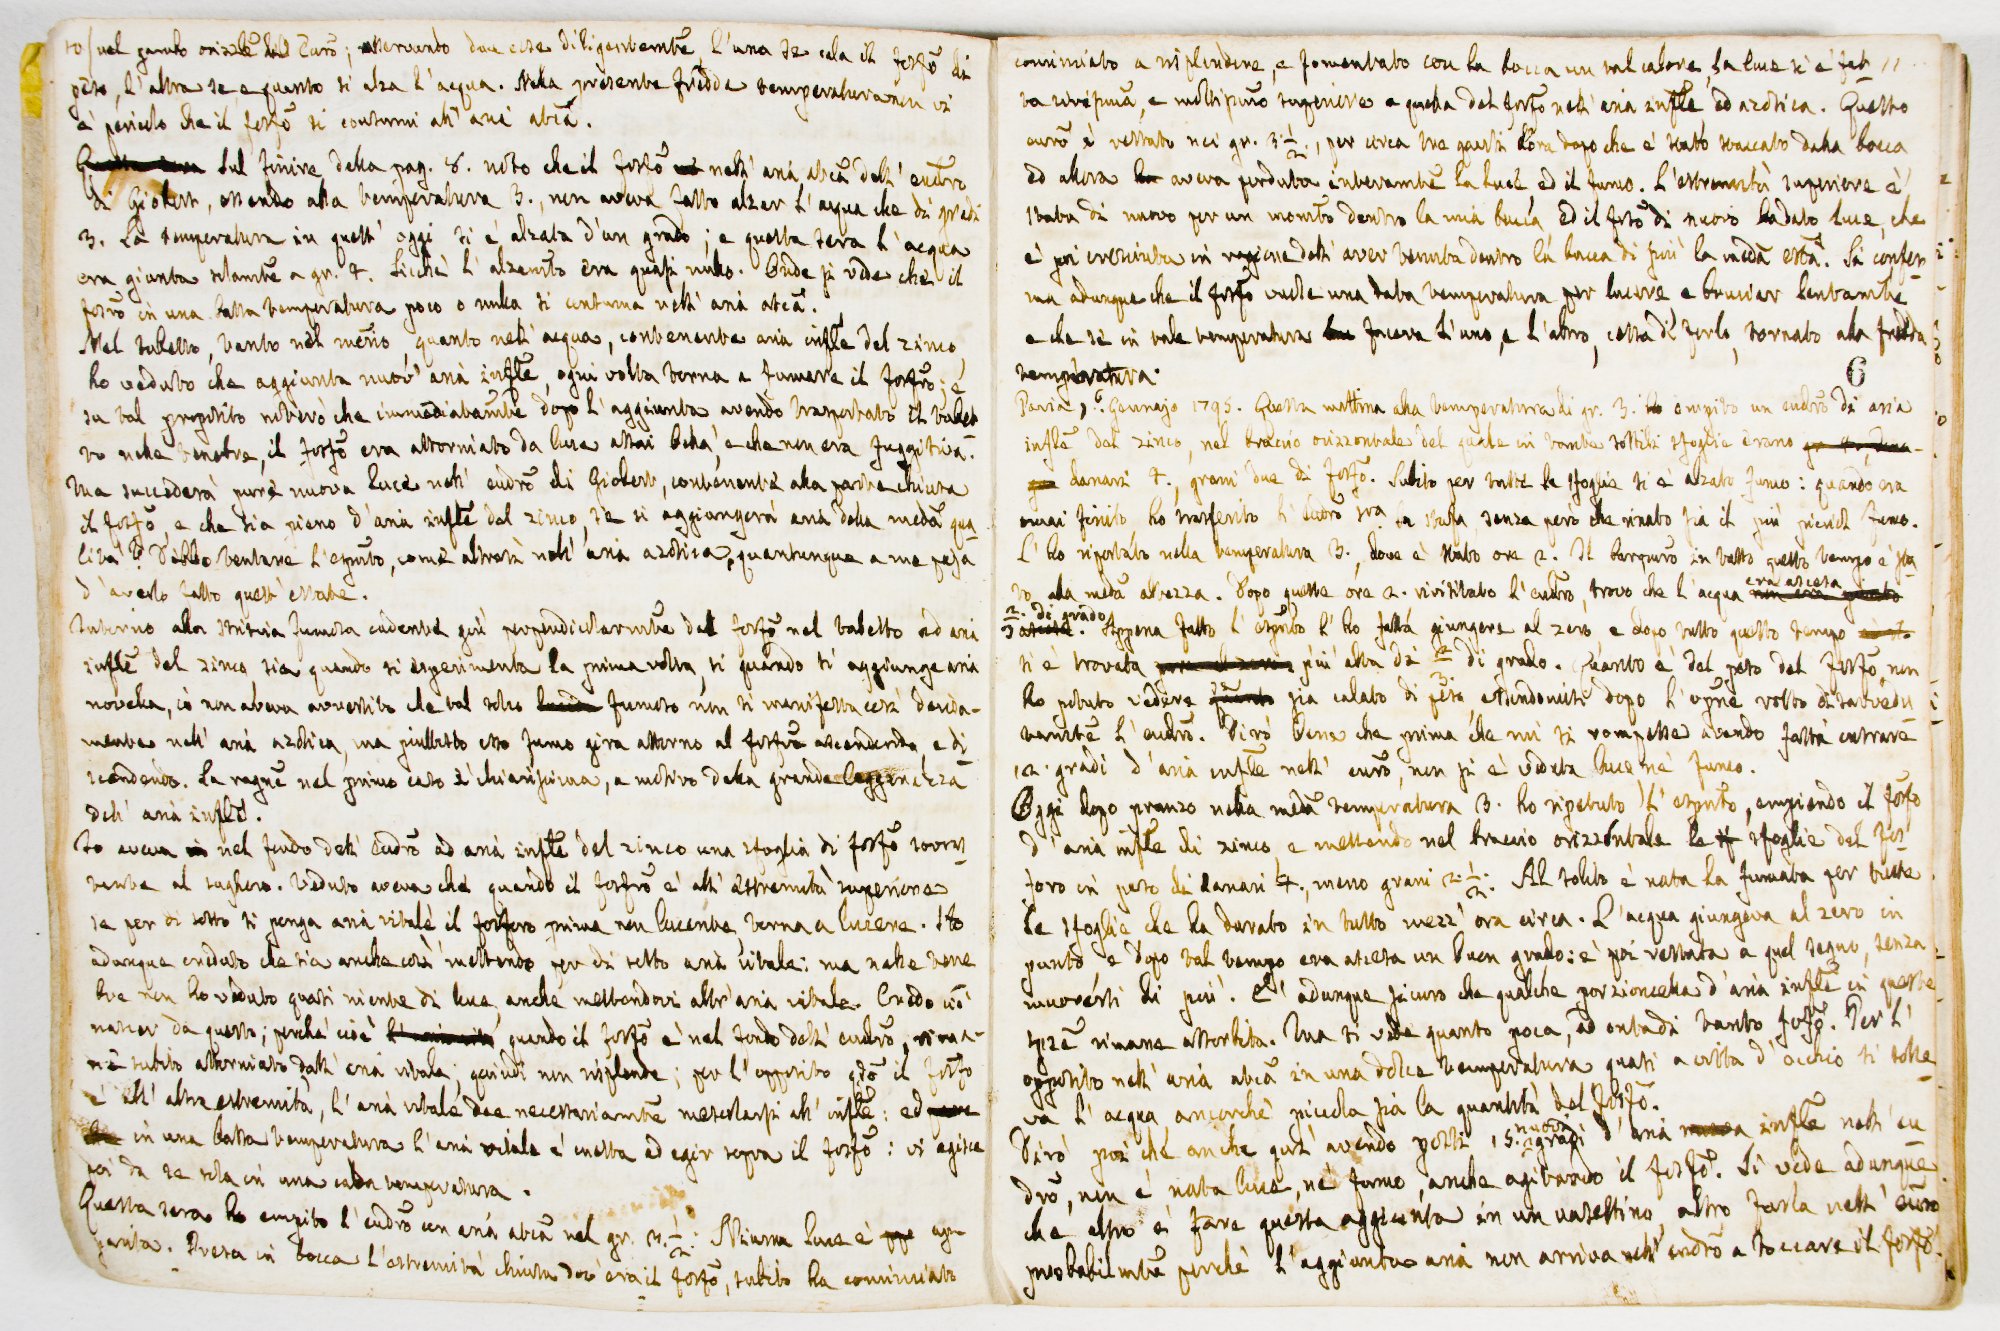 10 nel gambo orizzle dell' Eudrō; osservando due cose diligentembē, l'una se cala il fosfō di
peso, l'altra se e quanto si alza l'acqua. Nella presente fredda temperatura non vi
è pericolo che il fosfō si consumi all' aria atcā.
Sul finire della pag. 8. noto che il fosfō nell' aria atcā dell' eudrō
di Giobert, essendo alla temperatura 3., non aveva fatto alzar l'acqua che di gradi
3. La temperatura in quest' oggi si è alzata d'un grado; e questa sera l'acqua
era giunta solambē a gr. 4. Sicchè l'alzambō era quasi nullo. Onde si vede che il
fosfō in una bassa temperatura poco o nulla si consuma nell' aria atcā.
Nel tubetto, tanto nel mērio quanto nell' acqua, contenente aria inflē del zinco,
ho veduto che aggiunta nuov' aria inflē, ogni volta torna a fumare il fosfō: e
su tal proposito noterò che immediatambē dopo l'aggiunta avendo trasportato il tubet
to nelle tenebre, il fosfō era attorniato da luce assai bella, e che non era fuggitiva.
Ma succederà pure nuova luce nell' eudrō di Giobert, contenente alla parte chiusa
il fosfō, e che sia pieno d'aria inflē del zinco, se si aggiungerà aria della medā qua
lità? Debbo tentare l'espērto, come altresì nell' aria azotica, quantunque a me paja
d'averlo fatto quest' estate.
Intorno alla striscia fumosa cadente giù perpendicolarmbē dal fosfō nel tubetto ad aria
inflē del zinco sia quando si esperimenta la prima volta, si quando si aggiunge aria
novella, io non aveva avvertito che tal solco fumoso non si manifesta così decisa-
mente nell' aria azotica, ma piuttosto esso fumo gira attorno al fosfō ascendendo, e di
scendendo. La ragnē nel primo caso è chiarissima, a motivo della grande leggerezza
dell' aria inflē.
Io aveva nel fondo dell' Eudrō ad aria inflē del zinco una sfoglia di fosfō sovras
tante al sughero. Veduto aveva che quando il fosfrō è all' estremità superiore
se per di sotto si ponga aria vitale il fosforo prima non lucente, torna a lucere. Ho
adunque creduto che sia anche così mettendo per di sotto aria vitale: ma nelle tene
bre non ho veduto quasi niente di luce, anche mettendovi altr'aria vitale. Credo ciò
nascer da questo; perchè cioè quando il fosfō è nel fondo dell' eudrō, rima-
nē subito attorniato dall' aria vitale, quindi non risplende; per l'opposito qdō il fosfō
è all' altra estremità, l'aria vitale dee necessariambē mescolarsi all' inflē: ed
in una bassa temperatura l'aria vitale è inetta ad agir sopra il fosfō: vi agisce
poi da se sola in una calda temperatura.
Questa sera ho empito l'eudrō con aria atcā nel gr. 3.½. Niuna luce è ap-
parita. Presa in bocca l'estremità chiusa dov' era il fosfō, subito ha cominciato
cominciato a risplendere, e fomentato con la bocca un tal calore, la luce si è fat 11
ta vivissimā, e moltissmō superiore a quella del fosfō nell' aria inflē, ed azotica. Questo
eudrō è restato nei gr. 3½., per circa tre quarti d'ora dopo che è stato staccato dalla bocca
ed allora aveva perduta interambē la luce ed il fumo. L'estremità superiore è
stata di nuovo per un momtō dentro la mia bocca ed il fosfō di nuovo ha dato luce, che
è poi cresciuta in ragione dell' aver tenuta dentro la bocca di più la medā estā. Si confer
ma adunque che il fosfō vuole una data temperatura per lucere e bruciar lentambē
e che se in tale temperatura faceva l'uno, e l'altro, cessa di farlo, tornato alla fredda
temperatura.
6
Pavia, 1º. Gennajo 1795. Questa mattina alla temperatura di gr. 3. ho empito un eudrō di aria
inflē del zinco, nel braccio orizzontale del quale in tante sottili sfoglie erano
danari 4., grani due di fosfō. Subito per tutte le sfoglie si è alzato fumo: quando era
omai finito ho trasferito l'Eudrō sop. la stufa senza però che rinato sia il più picciol fumo.
L'ho riportato nella temperatura 3., dove è stato ore 2. Il barometrō in tutto questo tempo è sta
to alla medā altezza. Dopo queste ore 2. rivisitato l'eudrō, trovo che l'acqua era ascesa
2/3 di grado. Appena fatto l'espērto l'ho fatta giungere al zero e dopo tutto questo tempo
si è trovata più alta di 2/3 di grado. Quanto è del peso del fosfō, non
ho potuto vedere se sia calato di peso essendomisi dopo l'opnē rotto disavvedu
tambē l'eudrō. Dirò bene che prima che mi si rompesse avendo fatta entrare
12. gradi d'aria inflē nell' eudrō, non si è veduta luce nè fumo.
Oggi dopo pranzo nella medā temperatura 3. ho ripetuto l'espērto, empiendo il fosfo
d'aria inflē di zinco e mettendo nel braccio orizzontale le sfoglie del fos
foro in peso di danari 4., meno grani 2.½. Al solito è nata la fumata per tutte
le sfoglie che ha durato in tutto mezz' ora circa. L'acqua giungeva al zero in
punto, e dopo tal tempo era ascesa un buon grado: è poi restata a quel segno, senza
muoversi di più. E' adunque sicuro che qualche porzioncella d'aria inflē in queste
sperē rimane assorbita. Ma si vede quanto poca, ad onta di tanto fosfō. Per l'
opposito nell' aria atcā in una dolce temperatura quasi a colta d'occhio si solle
va l'acqua, ancorchè piccola sia la quantità del fosfō.
Dirò poi che anche qui avendo posti 15. nuovi gradi d'aria inflē nell' eu
drō, non è nata luce, nè fumo, anche agitando il fosfō. Si vede adunque
che altro è fare questa aggiunta in un vasettino, altro farla nell' eudrō
probabilmbē perchè l'aggiunta aria non arriva nell' eudrō a toccare il fosfō.